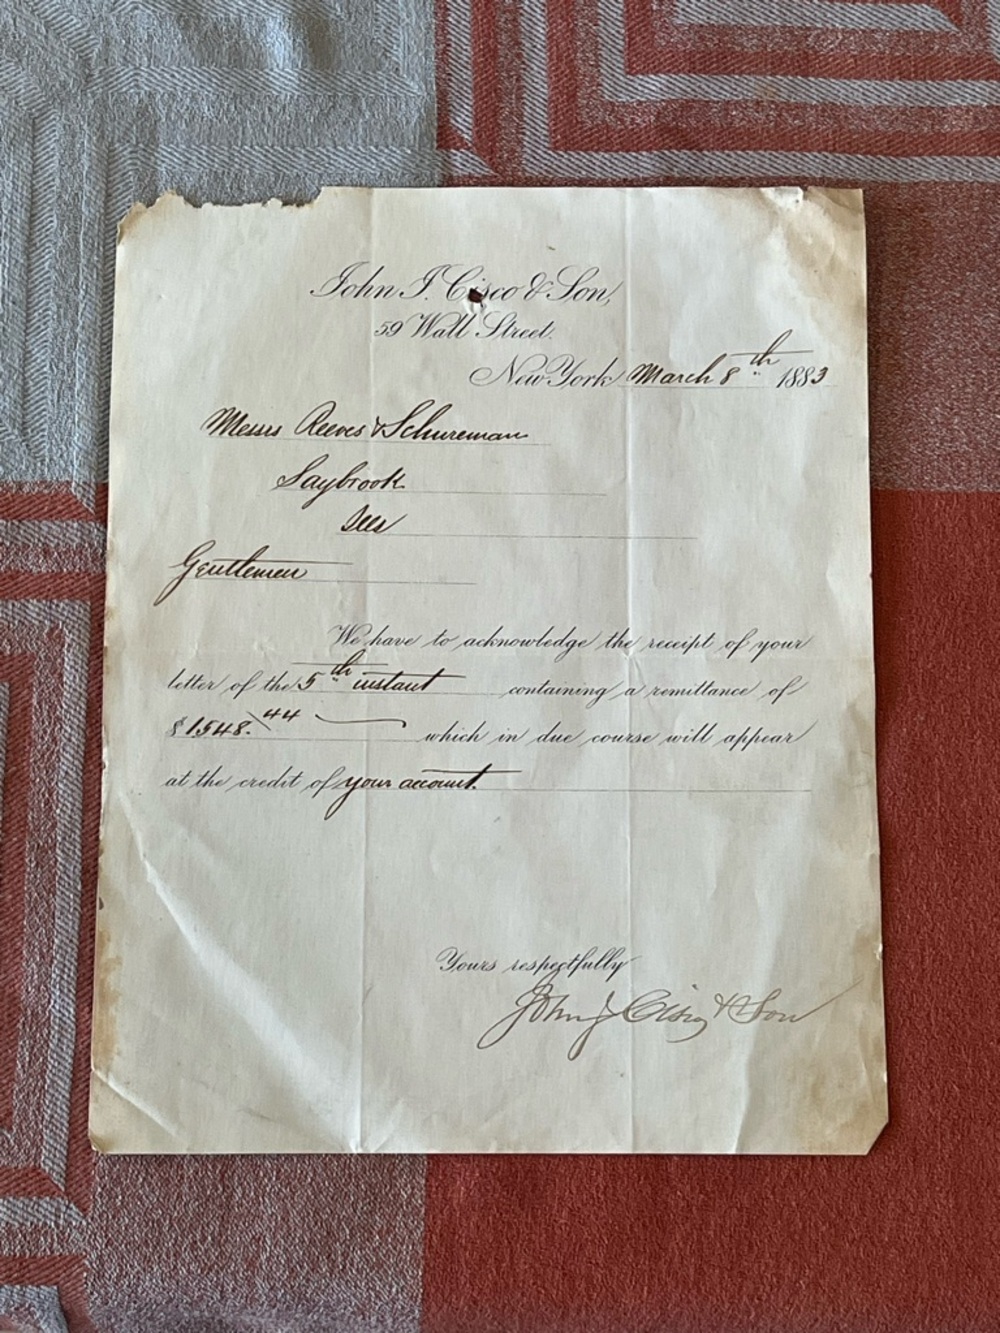 John J. Cisco & Son,
59 Wall Street.
New York March 8th 1883
Messrs Reeves & Schureman
Saybrook
Ills
Gentlemen
We have to acknowledge the receipt of your
letter of the 5th instant containing a remittance of
$1548.44 which in due course will appear
at the credit of your account.
Yours respectfully
John J Cisco & Son